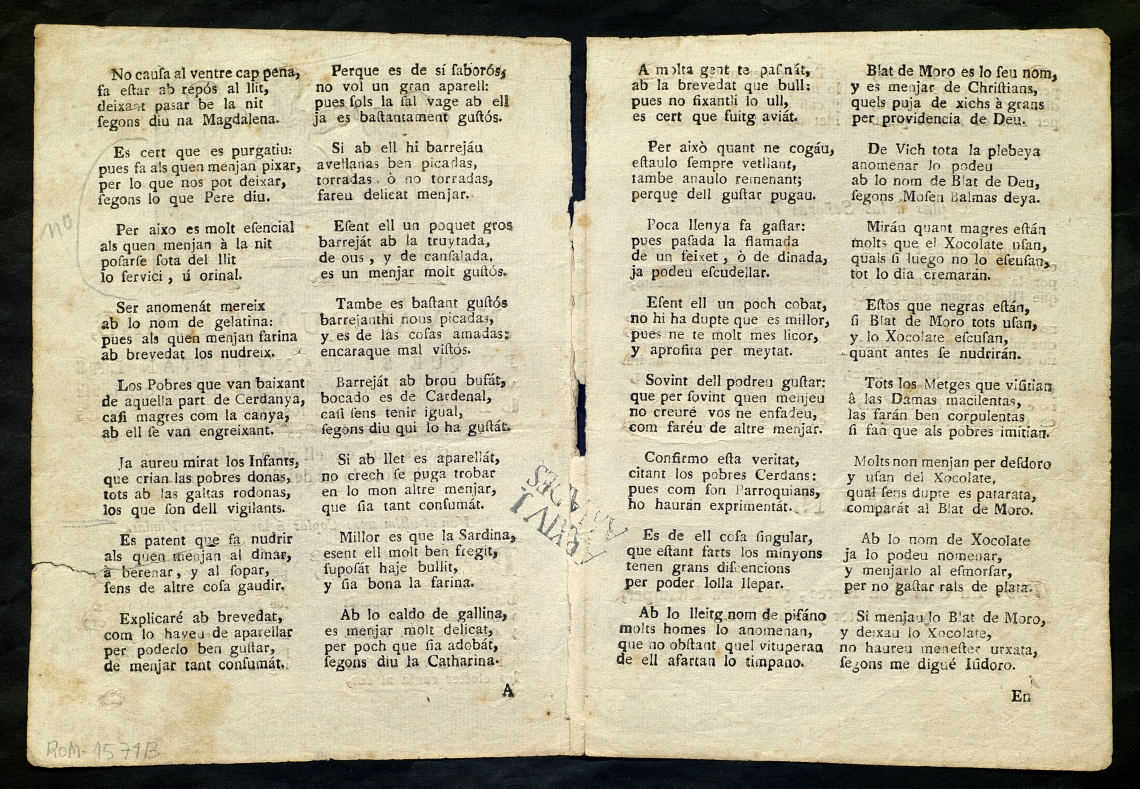 No cauſa al ventre cap pena,
fa eſtar ab repós al llit,
deixant paſar be la nit
ſegons diu na Magdalena.
Es cert que es purgatiu:
pues fa als quen menjan pixar,
per lo que nos pot deixar,
ſegons lo que Pere diu.
Per aixo es molt eſencial
als quen menjan à la nit
poſarſe ſota del llit
lo ſervici, ú orinal.
Ser anomenát mereix
ab lo nom de gelatina:
pues als quen menjan farina
ab brevedat los nudreix.
Los Pobres que van baixant
de aquella part de Cerdanya,
caſi magres com la canya,
ab ell ſe van engreixant.
Ja aureu mirat los Infants,
que crian las pobres donas,
tots ab las galtas rodonas,
los que ſon dell vigilants.
Es patent que fa nudrir
als quen menjan al dinar,
à berenar, y al ſopar,
ſens de altre coſa gaudir.
Explicaré ab brevedat,
com lo haveu de aparellar
per poderlo ben guſtar,
de menjar tant conſumát.
Perque es de sí ſaborós,
no vol un gran aparell:
pues ſols la ſal vage ab ell
ja es baſtantament guſtós.
Si ab ell hi barrejáu
avellanas ben picadas,
torradas ò no torradas,
fareu delicat menjar.
Eſent ell un poquet gros
barreját ab la truytada,
de ous, y de canſalada,
es un menjar molt guſtós.
Tambe es baſtant guſtós
barrejanthi nous picadas,
y es de las coſas amadas:
encaraque mal viſtos.
Barreját ab brou bufát,
bocado es de Cardenal,
caſi ſens tenir igual,
ſegons diu qui lo ha guſtát.
Si ab llet es aparellát,
no crech ſe puga trobar
en lo mon altre menjar,
que ſia tant conſumát.
Millor es que la Sardina,
esent ell molt ben fregit,
ſupoſát haje bullit,
y ſia bona la farina.
Ab lo caldo de gallina,
es menjar molt delicat,
per poch que ſia adobát,
ſegons diu la Catharina.
A
no
ROM-1571B
ARXIU
A molta gent te paſnát,
ab la brevedat que bull:
pues no fixantli lo ull,
es cert que fuitg aviát.
Per això quant ne cogáu,
eſtaulo ſempre vetllant,
tambe anaulo remenant;
perque dell guſtar pugau.
Poca llenya fa gaſtar:
pues paſada la flamada
de un feixet, ò de dinada,
ja podeu eſcudellar.
Eſent ell un poch cobat,
no hi ha dupte que es millor,
pues ne te molt mes licor,
y aprofita per meytat.
Sovint dell podreu guſtar:
que per ſovint quen menjeu
no creuré vos ne enfadeu,
com faréu de altre menjar.
Confirmo eſta veritat,
citant los pobres Cerdans:
pues com ſon Parroquians,
ho haurán exprimentát.
Es de ell coſa ſingular,
que eſtant farts los minyons
tenen grans diſcencions
per poder lolla llepar.
Ab lo lleitg nom de piſáno
molts homes lo anomenan,
que no obſtant quel vituperan
de ell afartan lo timpano.
Blat de Moro es lo ſeu nom,
y es menjar de Chriſtians,
quels puja de xichs à grans
per providencia de Deu.
De Vich tota la plebeya
anomenar lo podeu
ab lo nom de Blat de Deu,
ſegons Moſen Balmas deya.
Miráu quant magres eſtán
molts que el Xocolate uſan,
quals ſi luego no lo eſcuſan,
tot lo dia cremarán.
Eſtos que negras eſtán,
ſi Blat de Moro tots uſan,
y lo Xocolate eſcuſan,
quant antes ſe nudrirán.
Tots los Metges que viſitian
á las Damas macilentas,
las farán ben corpulentas
ſi fan que als pobres imitian.
Molts non menjan per deſdoro
y uſan del Xocolate,
qual ſens dupte es patarata,
comparát al Blat de Moro.
Ab lo nom de Xocolate
ja lo podeu nomenar,
y menjarlo al eſmorſar,
per no gaſtar rals de plata.
Si menjau lo Blat de Moro,
y deixau lo Xocolate,
no haureu meneſter urxata,
ſegons me digué Iſidoro.
En